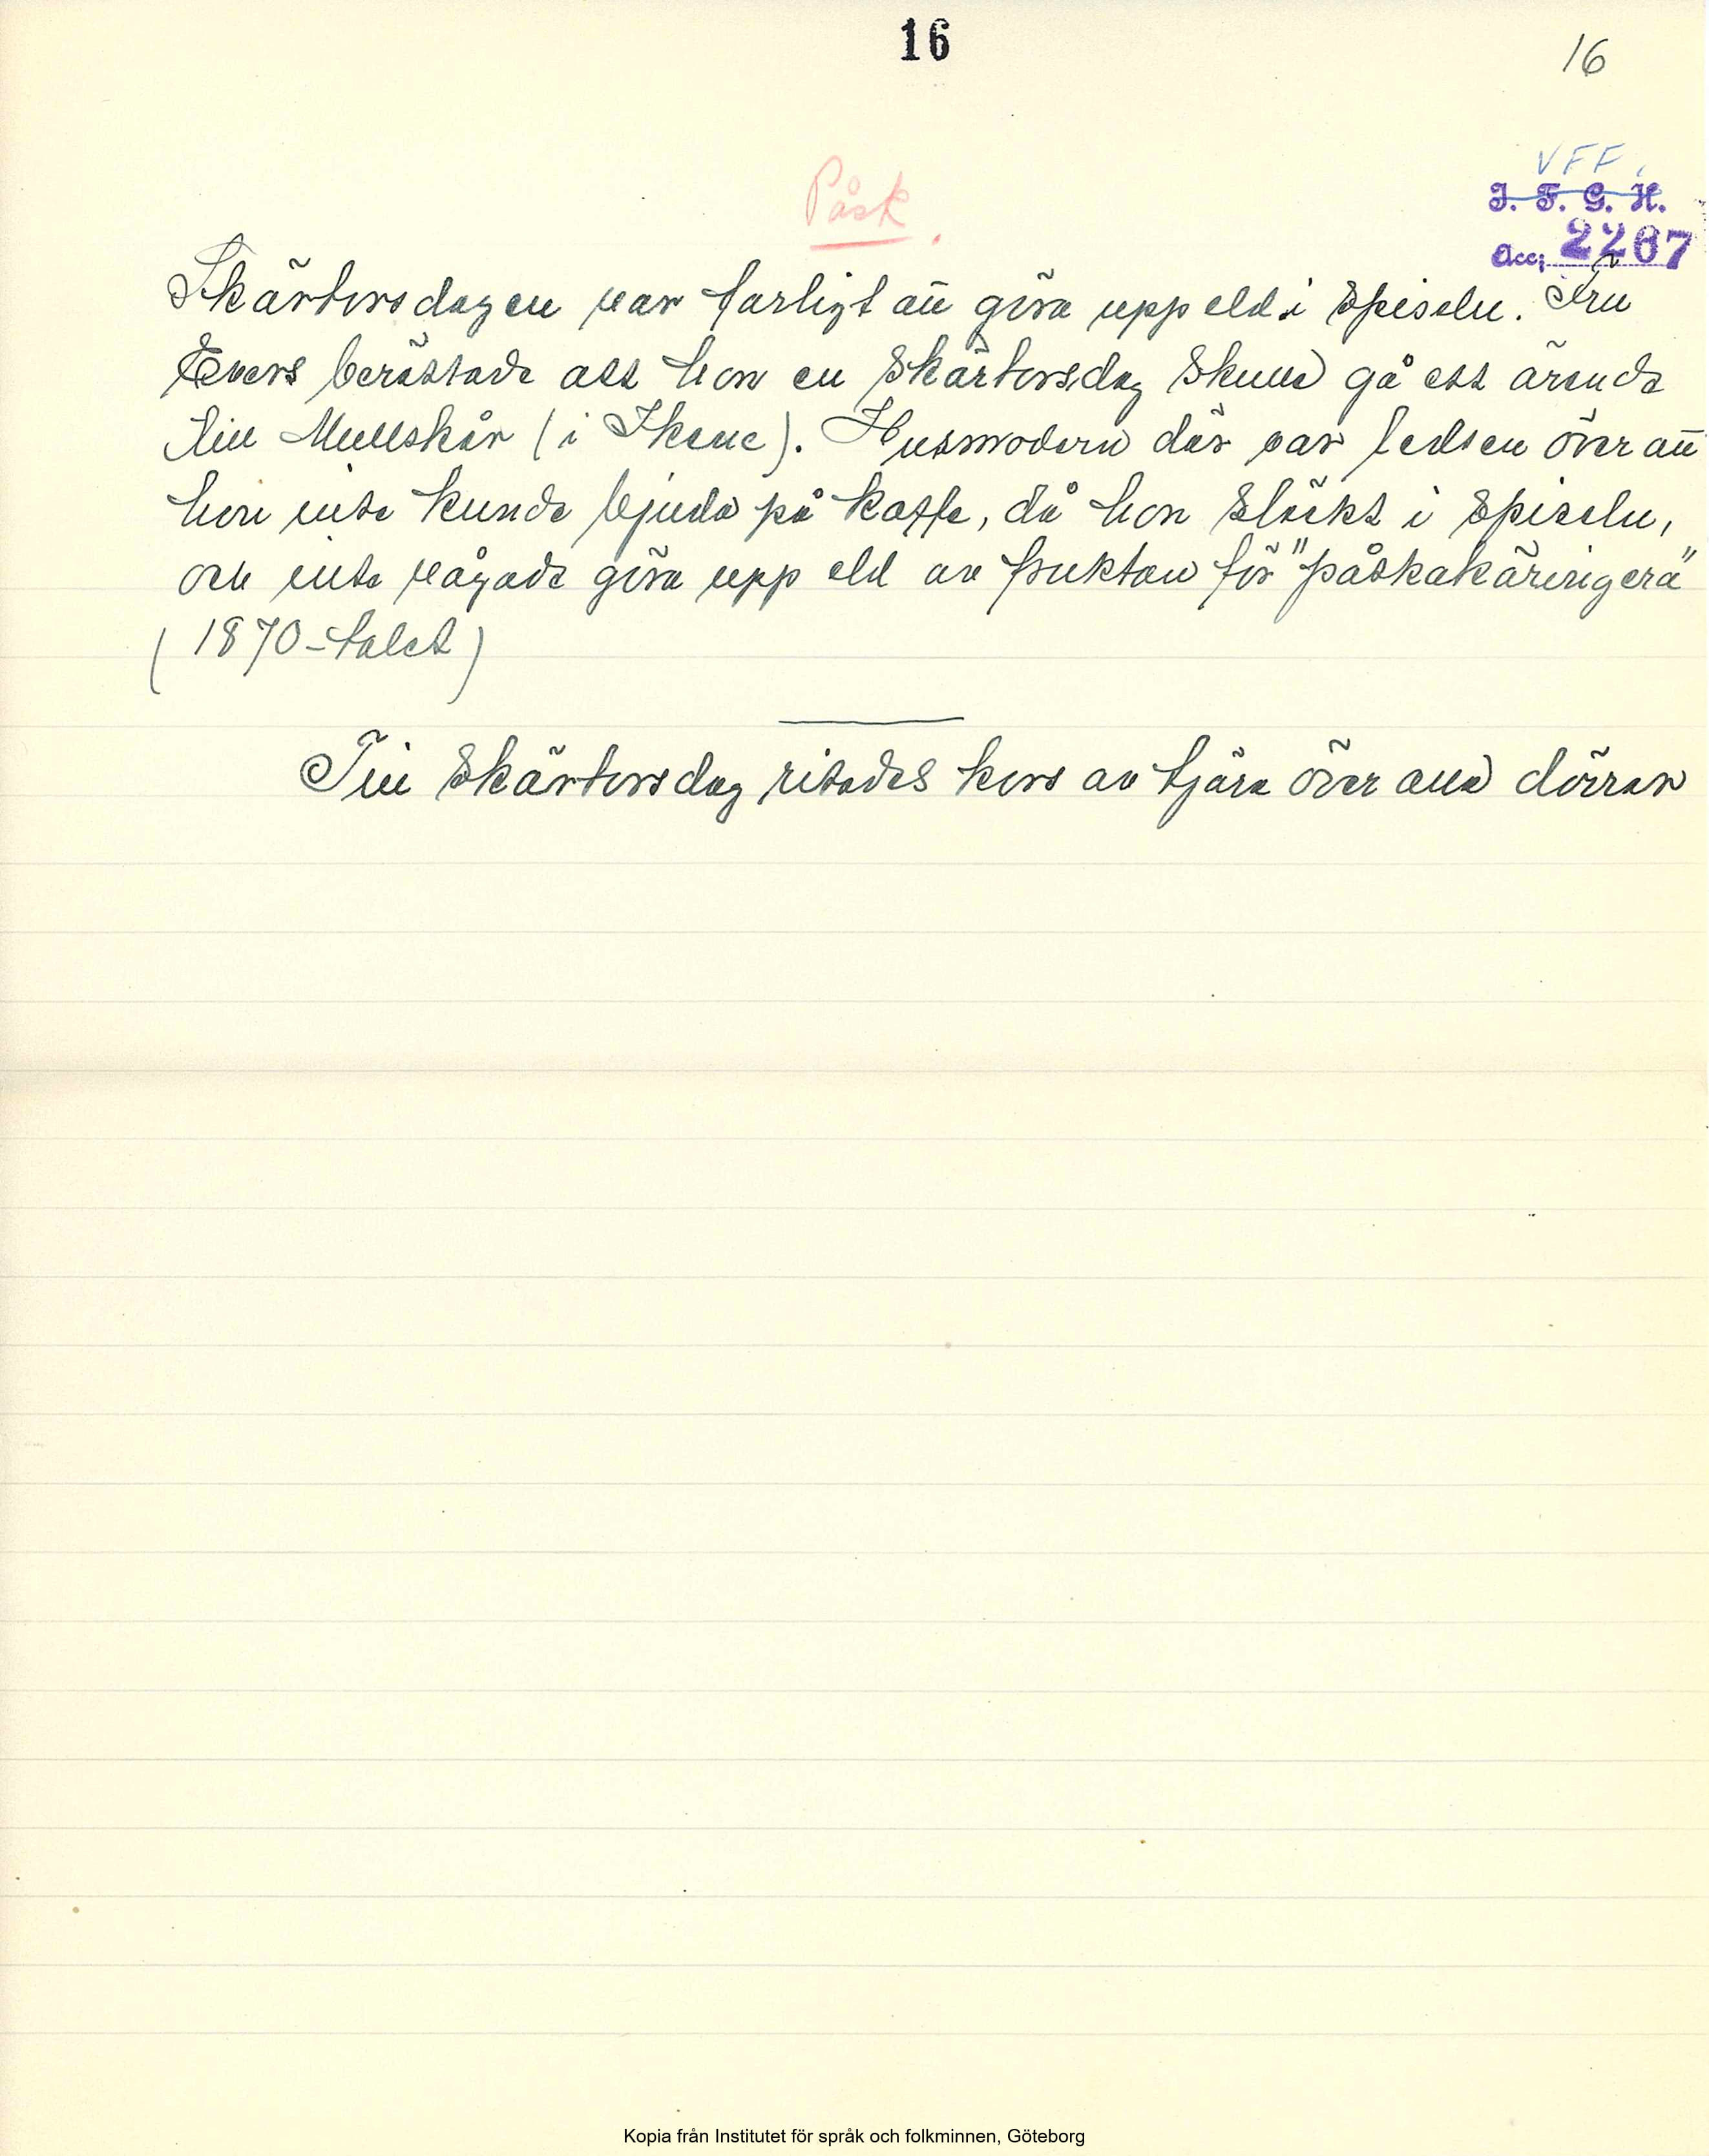 16
16
VFF.
I. F. G. H.
Acc; 2267
Påsk.
Skärtorsdagen var farligt att göra upp eld i spiseln. Fru
Evers berättade att hon en skärtorsdag skulle gå ett ärende
till Mullskår (i Skene). Husmodern där var ledsen över att
hon inte kunde bjuda på kaffe, då hon släckt i spiseln,
och inte vågade göra upp eld av fruktan för "påskakäringera"
(1870-talet)
Till skärtorsdag ritades kors av tjära över alla dörrar
Kopia från Institutet för språk och folkminnen, Göteborg